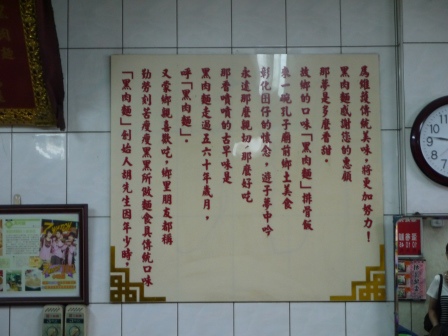 「黑肉麵」創始人胡先生因年少時，
勤勞刻苦瘦瘦黑黑所做麵食具傳統口味
又蒙鄉親喜歡吃，鄉里朋友都稱
呼「黑肉麵」。
黑肉麵走過五六十年歲月，
那麼噴噴的古早味是
永遠那麼親切那麼好吃
彰化囝仔的懷念，遊子夢中吟
來一碗孔子廟前鄉土美食
故鄉的口味「黑肉麵」排骨飯
那夢是多麼香甜。
黑肉麵感謝您的惠顧
為維護傳統美味，將更加努力！